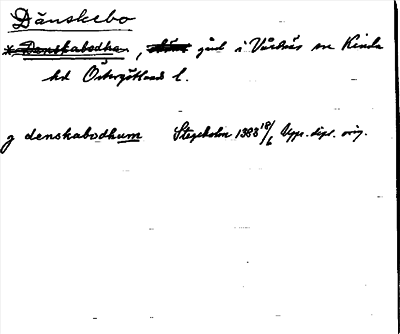 Dänskebo
*Denskabodha, gård i Vårdnäs sn Kinda
hd Östergötlands l.
g denskabodhum Stegeholm 1383 18/6 Upps. dipl. orig.